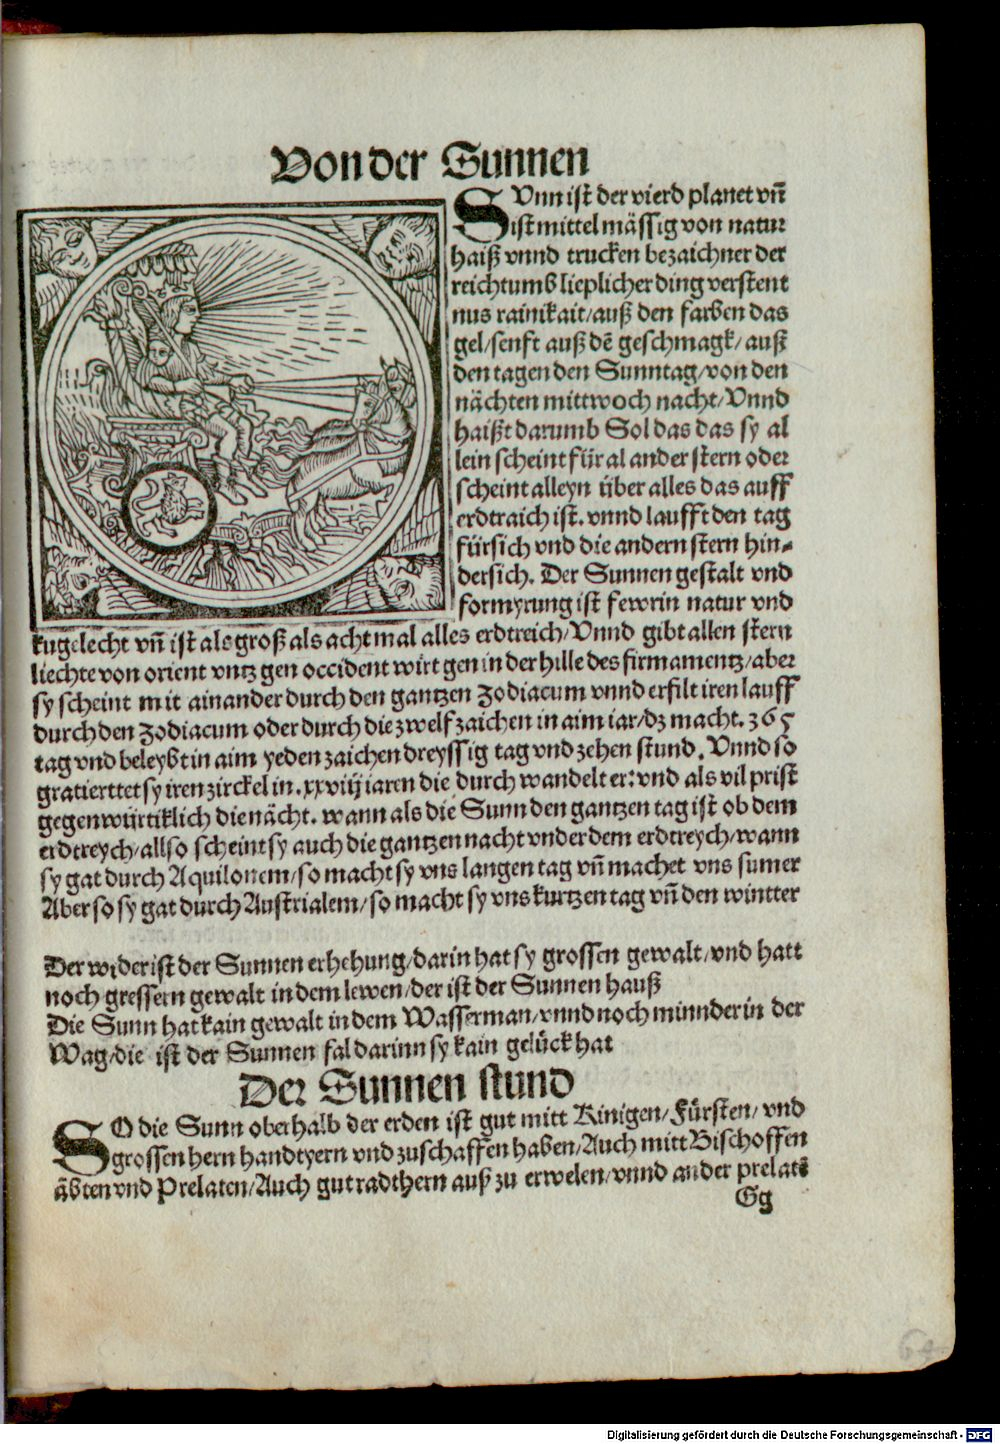 Von der Sunnen
SVnn ist der vierd planet vñ
ist mittel mässig von natur
haiß vnnd trucken bezaichner der
reichtumb lieplicher ding verstent
nus rainikait/auß den farben das
gel/senft auß dē geschmagk/auß
den tagen den Sunntag/von den
nächten mittwoch nacht/Vnnd
haißt darumb Sol das das sy al
lein scheint für al ander stern oder
scheint alleyn über alles das auff
erdtraich ist. vnnd laufft den tag
fürsich vnd die andern stern hin-
dersich. Der Sunnen gestalt vnd
formyrung ist fewrin natur vnd
kugelecht vñ ist als groß als acht mal alles erdtreich/Vnnd gibt allen stern
liechte von orient vntz gen occident wirt gen in der hille des firmamentz/aber
sy scheint mit ainander durch den gantzen Zodiacum vnnd erfilt iren lauff
durch den Zodiacum oder durch die zwelf zaichen in aim iar/dz macht. 365
tag vnd beleybt in aim yeden zaichen dreyssig tag vnd zehen stund. Vnnd so
gratierttet sy iren zirckel in. xxviij iaren die durch wandelt er: vnd als vil prist
gegenwürtiklich die nächt. wann als die Sunn den gantzen tag ist ob dem
erdtreych/allso scheint sy auch die gantzen nacht vnder dem erdtreych/wann
sy gat durch Aquilonem/so macht sy vns langen tag vñ machet vns sumer
Aber so sy gat durch Austrialem/so macht sy vns kurtzen tag vñ den wintter
Der wider ist der Sunnen erhehung/darin hat sy grossen gewalt/vnd hatt
noch gressern gewalt in dem lewen/der ist der Sunnen hauß
Die Sunn hat kain gewalt in dem Wasserman/vnnd noch minnder in der
Wag/die ist der Sunnen fal darinn sy kain gelück hat
Der Sunnen stund
SO die Sunn oberhalb der erden ist gut mitt Kinigen/Fürsten/vnd
grossen hern handtyern vnd zuschaffen haben/Auch mitt Bischoffen
äbten vnd Prelaten/Auch gut radthern auß zu erwelen/vnnd ander prelatē
Gg
64
Digitalisierung gefördert durch die Deutsche Forschungsgemeinschaft - DFG